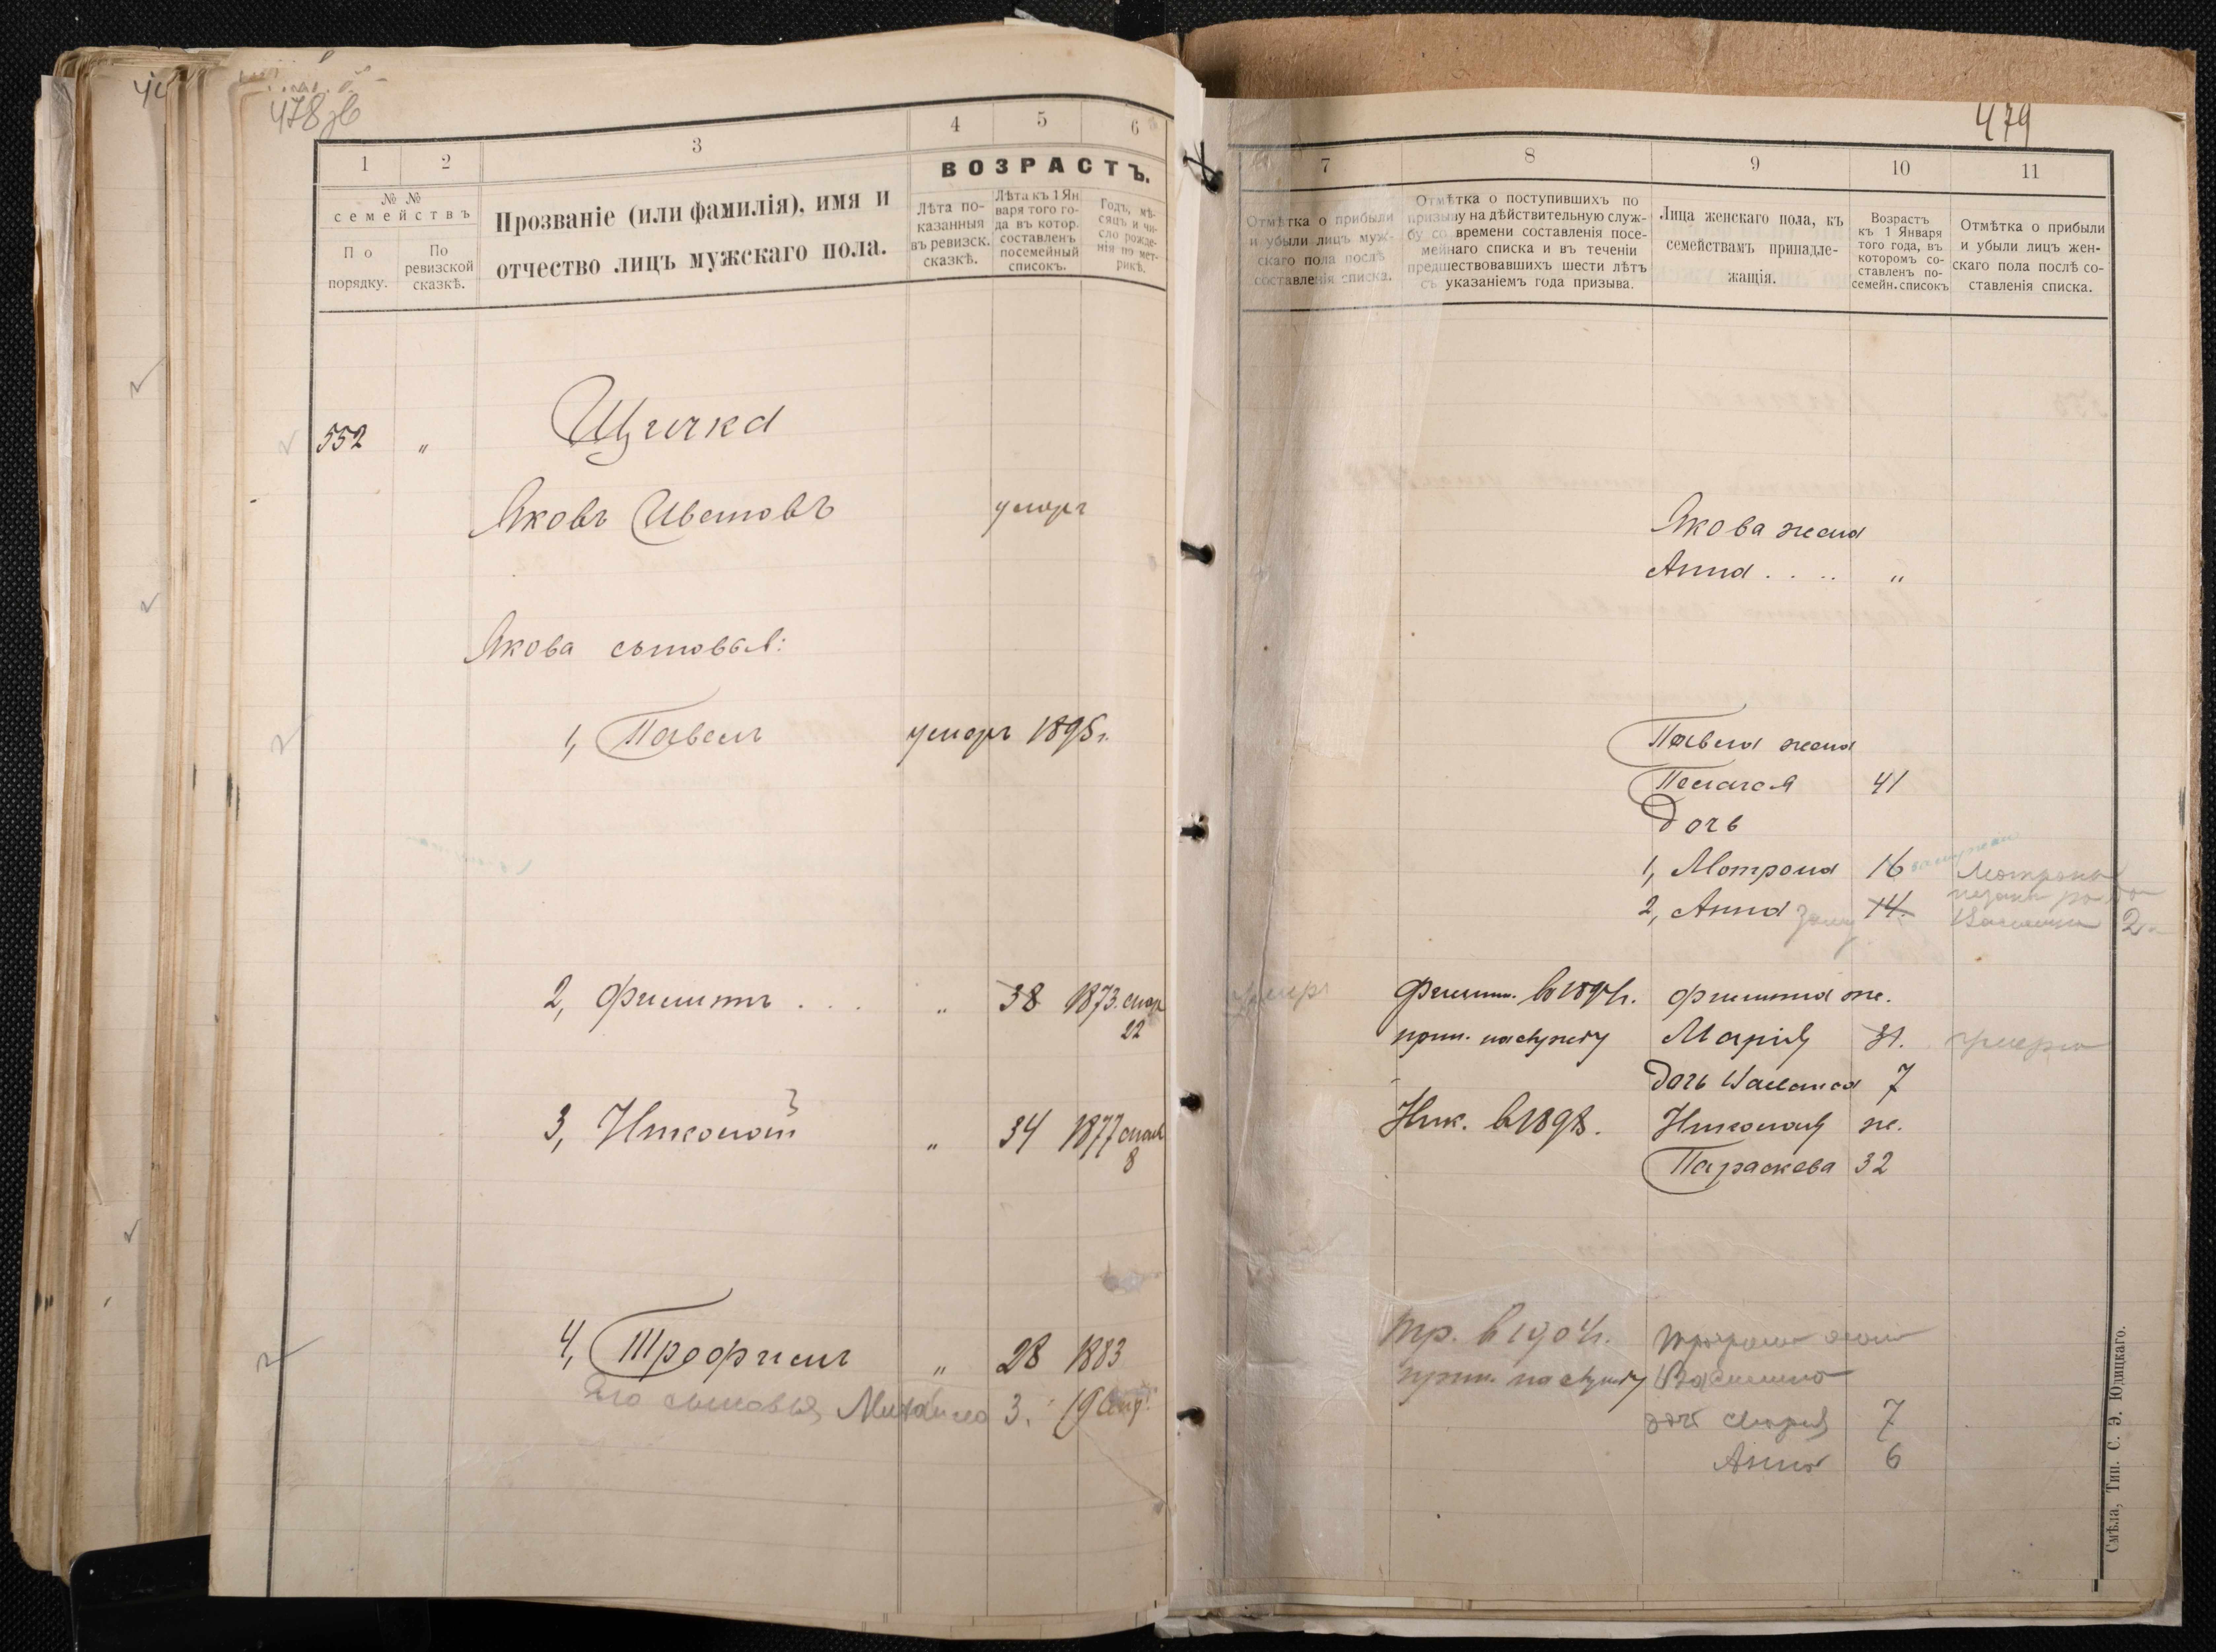 478 об
1
2
3
4
5
6
№ №
семействъ
По
порядку.
По
ревизской
сказкѣ.
Прозваніе (или фамилія), имя и
отчество лицъ мужскаго пола.
ВОЗРАСТЪ.
Лѣта по-
казанныя
въ ревизск.
сказкѣ.
Лѣта къ 1 Ян
варя того го-
да въ котор.
составленъ
посемейный
списокъ.
Годъ, мѣ-
сяцъ и чи-
сло рожде-
нія по мет-
рикѣ.
552 „ Щичка
Яковъ Ивановъ умеръ
Якова сыновья:
1, Павелъ умеръ 1895 г.
2, Филиппъ . . . „ 38 1873.
22
3, Николай „ 34 1877
8
4, Трофимъ „ 28 1883
Его сыновья, Михаило 3.
479
7
8
9
10
11
Отмѣтка о прибыли
и убыли лицъ муж-
скаго пола послѣ
составленія списка.
Отмѣтка о поступившихъ по
призыву на дѣйствительную служ-
бу со времени составленія посе-
мейнаго списка и въ теченіи
предшествовавшихъ шести лѣтъ
съ указаніемъ года призыва.
Лица женскаго пола, къ
семействамъ принадле-
жащія.
Возрастъ
къ 1 Января
того года, въ
которомъ со-
ставленъ по-
семейн. списокъ
Отмѣтка о прибыли
и убыли лицъ жен-
скаго пола послѣ со-
ставленія списка.
Якова жена
Анна . . .. „
Павла жена
Пелагея 41
Дочь
1, Мотрона 16 замужем Мотроны
2, Анна 14. 2
умеръ Филип. в 189 г. Филиппа же.
прин. на службу Марія 31. умерла
дочь 7
Ник. в 1898. Николая же.
Параскева 32
Тр. в 1904 г. Трофима жена
прин. на службу Василина
доч Марія 7
Анна 6
Смѣла, Тип. С. Э. Юдицкаго.